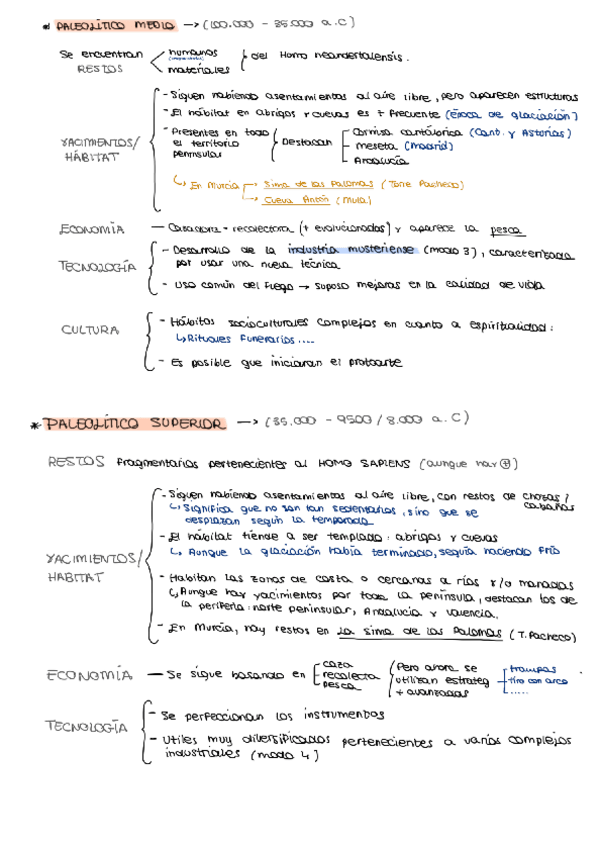 * PALEOLÍTICO MEDIO → (100.000 - 35.000 a.C)
Se encuentran RESTOS
humanos
materiales
del Homo neandertalensis.
YACIMIENTOS/ HÁBITAT
- Siguen habiendo asentamientos al aire libre, pero aparecen estructuras
- El hábitat en abrigos y cuevas es + frecuente (época de glaciación)
- Presentes en todo el territorio peninsular
Destacan
Cornisa cantábrica (Cant. y Asturias)
meseta (Madrid)
Andalucía
↳ En Murcia
→ Sima de las Palomas (Torre Pacheco)
→ Cueva Antón (Mula)
ECONOMÍA — Cazadora - recolectora (+ evolucionados) y aparece la pesca
TECNOLOGÍA
- Desarrollo de la industria musteriense (modo 3), caracterizada
por usar una nueva técnica
- Uso común del fuego → supuso mejoras en la calidad de vida
CULTURA
- Hábitos socioculturales complejos en cuanto a espiritualidad:
↳ Rituales Funerarios....
- Es posible que iniciaran el protoarte
* PALEOLÍTICO SUPERIOR → (35.000 - 9500/8.000 a.C)
RESTOS fragmentarios pertenecientes al HOMO SAPIENS (aunque hay ⊕)
YACIMIENTOS/ HÁBITAT
- Siguen habiendo asentamientos al aire libre, con restos de chozas/ cabañas
↳ Significa que no son tan sedentarios, sino que se
desplazan según la temporada
- El hábitat tiende a ser templado: abrigos y cuevas
↳ Aunque la glaciación había terminado, seguía haciendo frío
- Habitan las zonas de costa o cercanas a ríos y/o manadas
↳ Aunque hay yacimientos por toda la península, destacan los de
la periferia: norte peninsular, Andalucía y Valencia.
- En Murcia, hay restos en la sima de las Palomas (T.Pacheco)
ECONOMÍA — Se sigue basando en
caza
recolecta
pesca
Pero ahora se
utilizan estrateg
+ avanzadas
trampas
tiro con arco
.....
TECNOLOGÍA
- Se perfeccionan los instrumentos
- Utiles muy diversificados pertenecientes a varios complejos
industriales (modo 4)